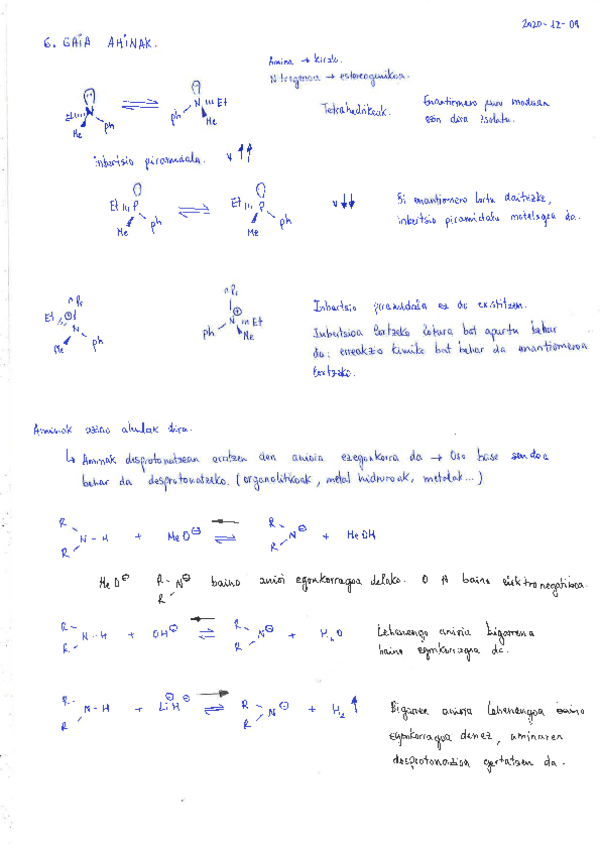 2020-12-09
6. GAIA AMINAK.
Amina → kiral.
Nitrogenoa → estereogenikoa.
N Et N Et
Me ph ph Me
Tetrahedrikoak.
Enantiomero puru moduan
ezin dira isolatu.
inbertsio piramidala. v ↑↑
Et P ph Me ⇌ Et P ph Me
v ↓↓
Si enantiomero lortu daitezke,
inbertsio piramidala motelagoa da.
nPr nPr
Et ⊕ N Me ph ph N ⊕ Et Me
Inbertsio piramidala ez du existitzen.
Inbertsioa lortzeko lotura bat apurtu behar
da: erreakzio kimiko bat behar da enantiomeroa
lortzeko.
Aminak azino ahulak dira.
↳ Aminak desprotonatzean eratzen den anioia ezegonkorra da → Oso base sendoa
behar da desprotonatzeko. (organolitikoak, metal hidruroak, metalak...)
R R N-H + MeO⊖ ⇌ R R N⊖ + MeOH
MeO⊖ R R N⊖ baino anioi egonkorragoa delako. O A baino elektronegatiboa.
R R N-H + OH⊖ ⇌ R R N⊖ + H2O
Lehenengo anioia bigarrena
baino egonkorragoa da.
R R N-H + LiH⊖ ⇌ R R N⊖ + H2 ↑
Bigarren anioia lehenengoa baino
egonkorragoa denez, aminaren
desprotonazioa gertatzen da.